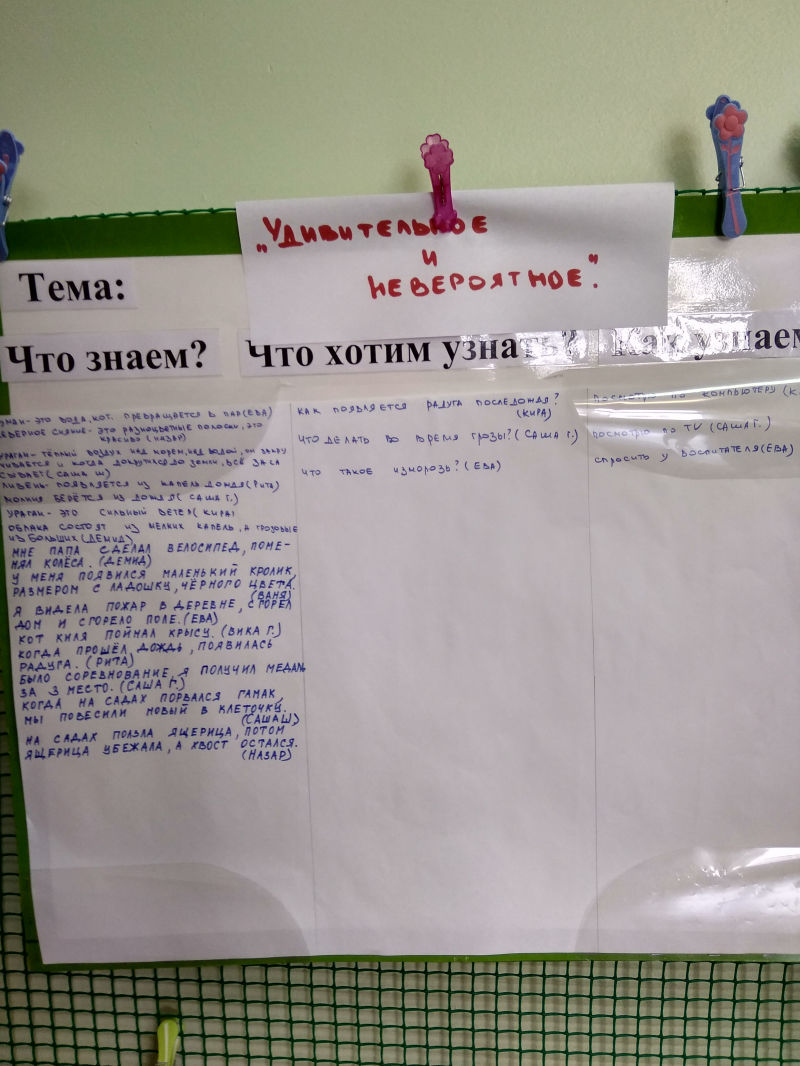 "Удивительное
и
невероятное".
Тема:
Что знаем?
Что хотим узнать?
Как узнаем
туман - это вода, кот. превращается в пар (Ева)
северное сияние - это разноцветные полоски, это
красиво (Назар)
ураган - тёплый воздух над морем, над водой, он
и когда докрутился до земли, всё
(Саша Ш)
ливень - появляется из капель дождя (Рита)
молния берётся из дождя (Саша Г.)
ураган - это сильный ветер (Кира)
облака состоят из мелких капель, а грозовые
из больших (Демид)
мне папа сделал велосипед, поме-
нял колёса. (Демид)
у меня появился маленький кролик,
размером с ладошку, чёрного цвета.
(Ваня)
я видела пожар в деревне, сгорел
дом и сгорело поле. (Ева)
кот Киля поймал крысу. (Вика Г.)
когда прошёл дождь, появилась
радуга. (Рита)
было соревнование, я получил медаль
за 3 место. (Саша Г.)
когда на садах порвался гамак,
мы повесили новый в клеточку.
(Саша Ш)
на садах ползла ящерица, потом
ящерица убежала, а хвост остался.
(Назар)
как появляется радуга после дождя?
(Кира)
что делать во время грозы? (Саша Г.)
что такое изморозь? (Ева)
посмотрю по компьютеру (К
посмотрю по TV (Саша Г.)
спросить у воспитателя (Ева)